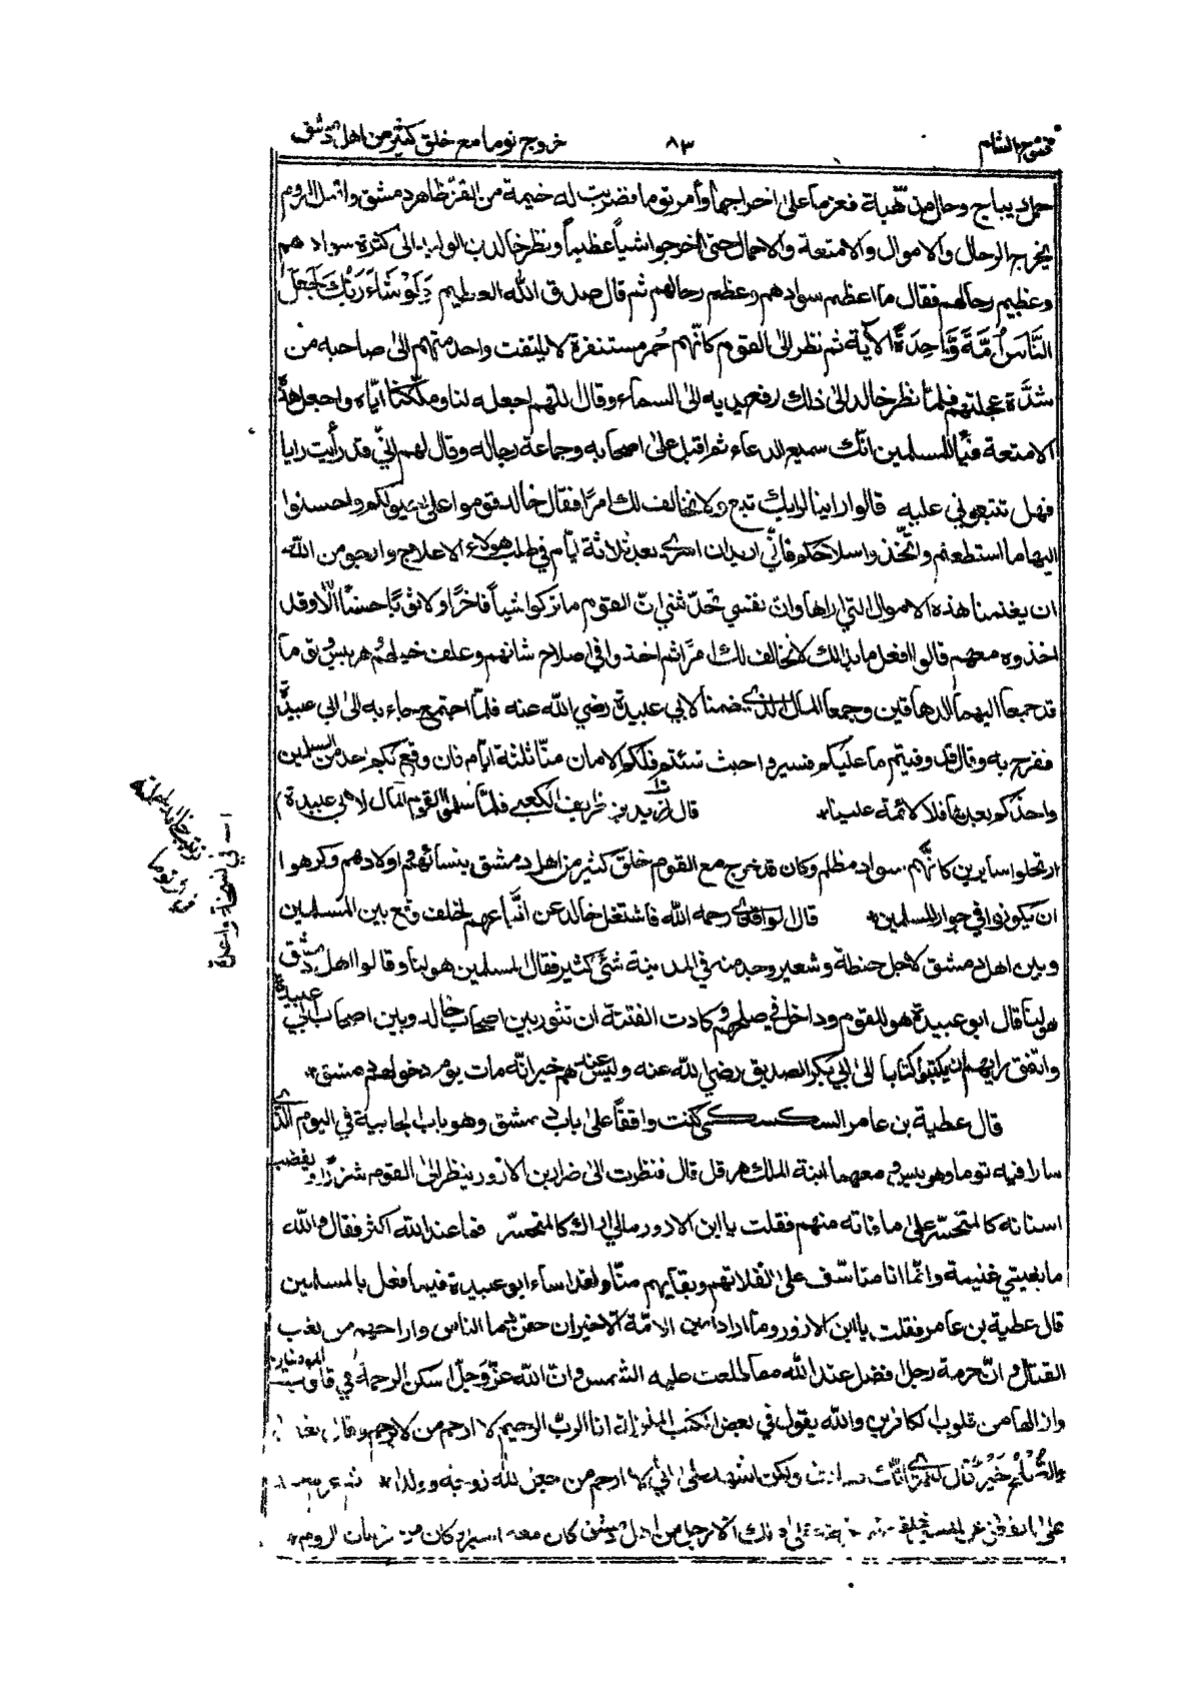 فتوح الشام ٨٣ خروج توما مع خلق كثير من اهل دمشق
حمل ديباج وحال من ذهبة فعزما على اخراجها وأمر توما فضربت له خيمة من القز ظاهر دمشق واقبل الروم
يخرج الرحال والاموال والامتعة والاحمال حتى اخرجوا شيأ عظيماً ونظر خالد بن الوليد الى كثرة سوادهم
وعظيم رحالهم فقال ما اعظم سوادهم وعظم رحالهم ثم قال صدق الله العظيم وَلَوْ شَاءَ رَبُّكَ لَجَعَلَ
النَّاسَ اُمَّةً وَّاحِدَةً الآية ثم نظر الى القوم كانّهم حُمر مستنفرة لا يلتفت واحد منهم الى صاحبه من
شدَّة عجلتهم فلمّا نظر خالد الى ذلك رفع يديه الى السماء وقال اللهم اجعله لنا وملّكنا ايّاه واجعل هذه
الامتعة فيأ للمسلمين انّك سميع الدعاء ثم اقبل على اصحابه وجماعة رجاله وقال لهم اني قد رأيت رايا
فهل تتبعوني عليه قالوا راينا لرايك تبع ولا نخالف لك امرًا فقال خالد قوموا على خيولكم واحسنوا
اليها ما استطعتم واتّخذوا سلاحكم فاني اريد ان اسرى بعد ثلاثة ايّام في طلب هولاء الاعلاج وارجو من الله
ان يغنمنا هذه الاموال التي اراها وان نفسي تحدّثني انّ القوم ما تركوا شيأ فاخرًا ولا ثوبًا حسنًا الّا وقد
اخذوه معهم قالوا افعل ما بدا لك لا نخالف لك امرًا ثم اخذوا في اصلاح شانهم وعلف خيلهم هربيس وتوما
قد جمعا اليهما الدهاقين وجمعا المال الذي ضمنا لابي عبيدة رضي الله عنه فلمّا اجتمع جاء به الى ابي عبيدة
ففرح به وقال قد وفيتم ما عليكم فسيروا حيث شئتم فلكم الامان منّا ثلثة ايّام فان وقع بكم احد من المسلمين
واخذكم بعدها فلا لائمة علينا* قال زيد بن ظريف الكعبي فلمّا سلّم القوم المال لابي عبيدة
ارتحلوا سايرين كانّهم سواد مظلم وكان قد خرج مع القوم خلق كثير من اهل دمشق بنسائهم واولادهم وكرهوا
ان يكونوا في جوار المسلمين* قال الواقدي رحمه الله فاشتغل خالد عن اتّباعهم لخلف وقع بين المسلمين
وبين اهل دمشق لاجل حنطة وشعير وجد منه في المدينة شئ كثير فقال المسلمين هو لنا وقالوا اهل دمشق
هو لنا قال ابو عبيدة هو للقوم وداخل في صلحهم وكادت الفتنة ان تثور بين اصحاب خالد وبين اصحاب ابي عبيدة
واتفق رايهم ان يكتبوا كتابا الى ابي بكر الصديق رضي الله عنه وليس عندهم خبر انّه مات يوم دخولهم دمشق*
قال عطية بن عامر السكسكي كنت واقفاً على باب دمشق وهو باب الجابية في اليوم الذي
سارا فيه توما وهربيس ومعهما ابنة الملك هرقل قال فنظرت الى ضرار بن الازور ينظر الى القوم شزرًا ويقضب
اسنانه كالمتحسّر على ما فاته منهم فقلت يا ابن الازور مالي اراك كالمتحسّر فما عند الله اكثر فقال والله
ما بغيتي غنيمة وانّما انا متاسّف على انفلاتهم وبقايهم منّا ولقد اساء ابو عبيدة فيما فعل بالمسلمين
قال عطية بن عامر فقلت يا ابن الازور وما اراد امين الامّة الّا خيرا ان حقن دماء الناس واراحهم من تعب
القتال وانّ حرمة رجل افضل عند الله مما طلعت عليه الشمس وانّ الله عزّ وَجلّ سكن الرحمة في قلوب المؤمنين
وازالها من قلوب الكافرين والله يقول في بعض الكتب المنزلة انا الربّ الرحيم لا ارحم من لا يرحم وقال تعالى
والصُّلْحُ خَيْرٌ قال لعمري انّك صادق ولكن اشهد على اني لا ارحم من جعل لله زوجة وولدا*
الّا رجل من اهل دمشق كان معه اسير وكان من الروم*
ا في نسخة واعلة